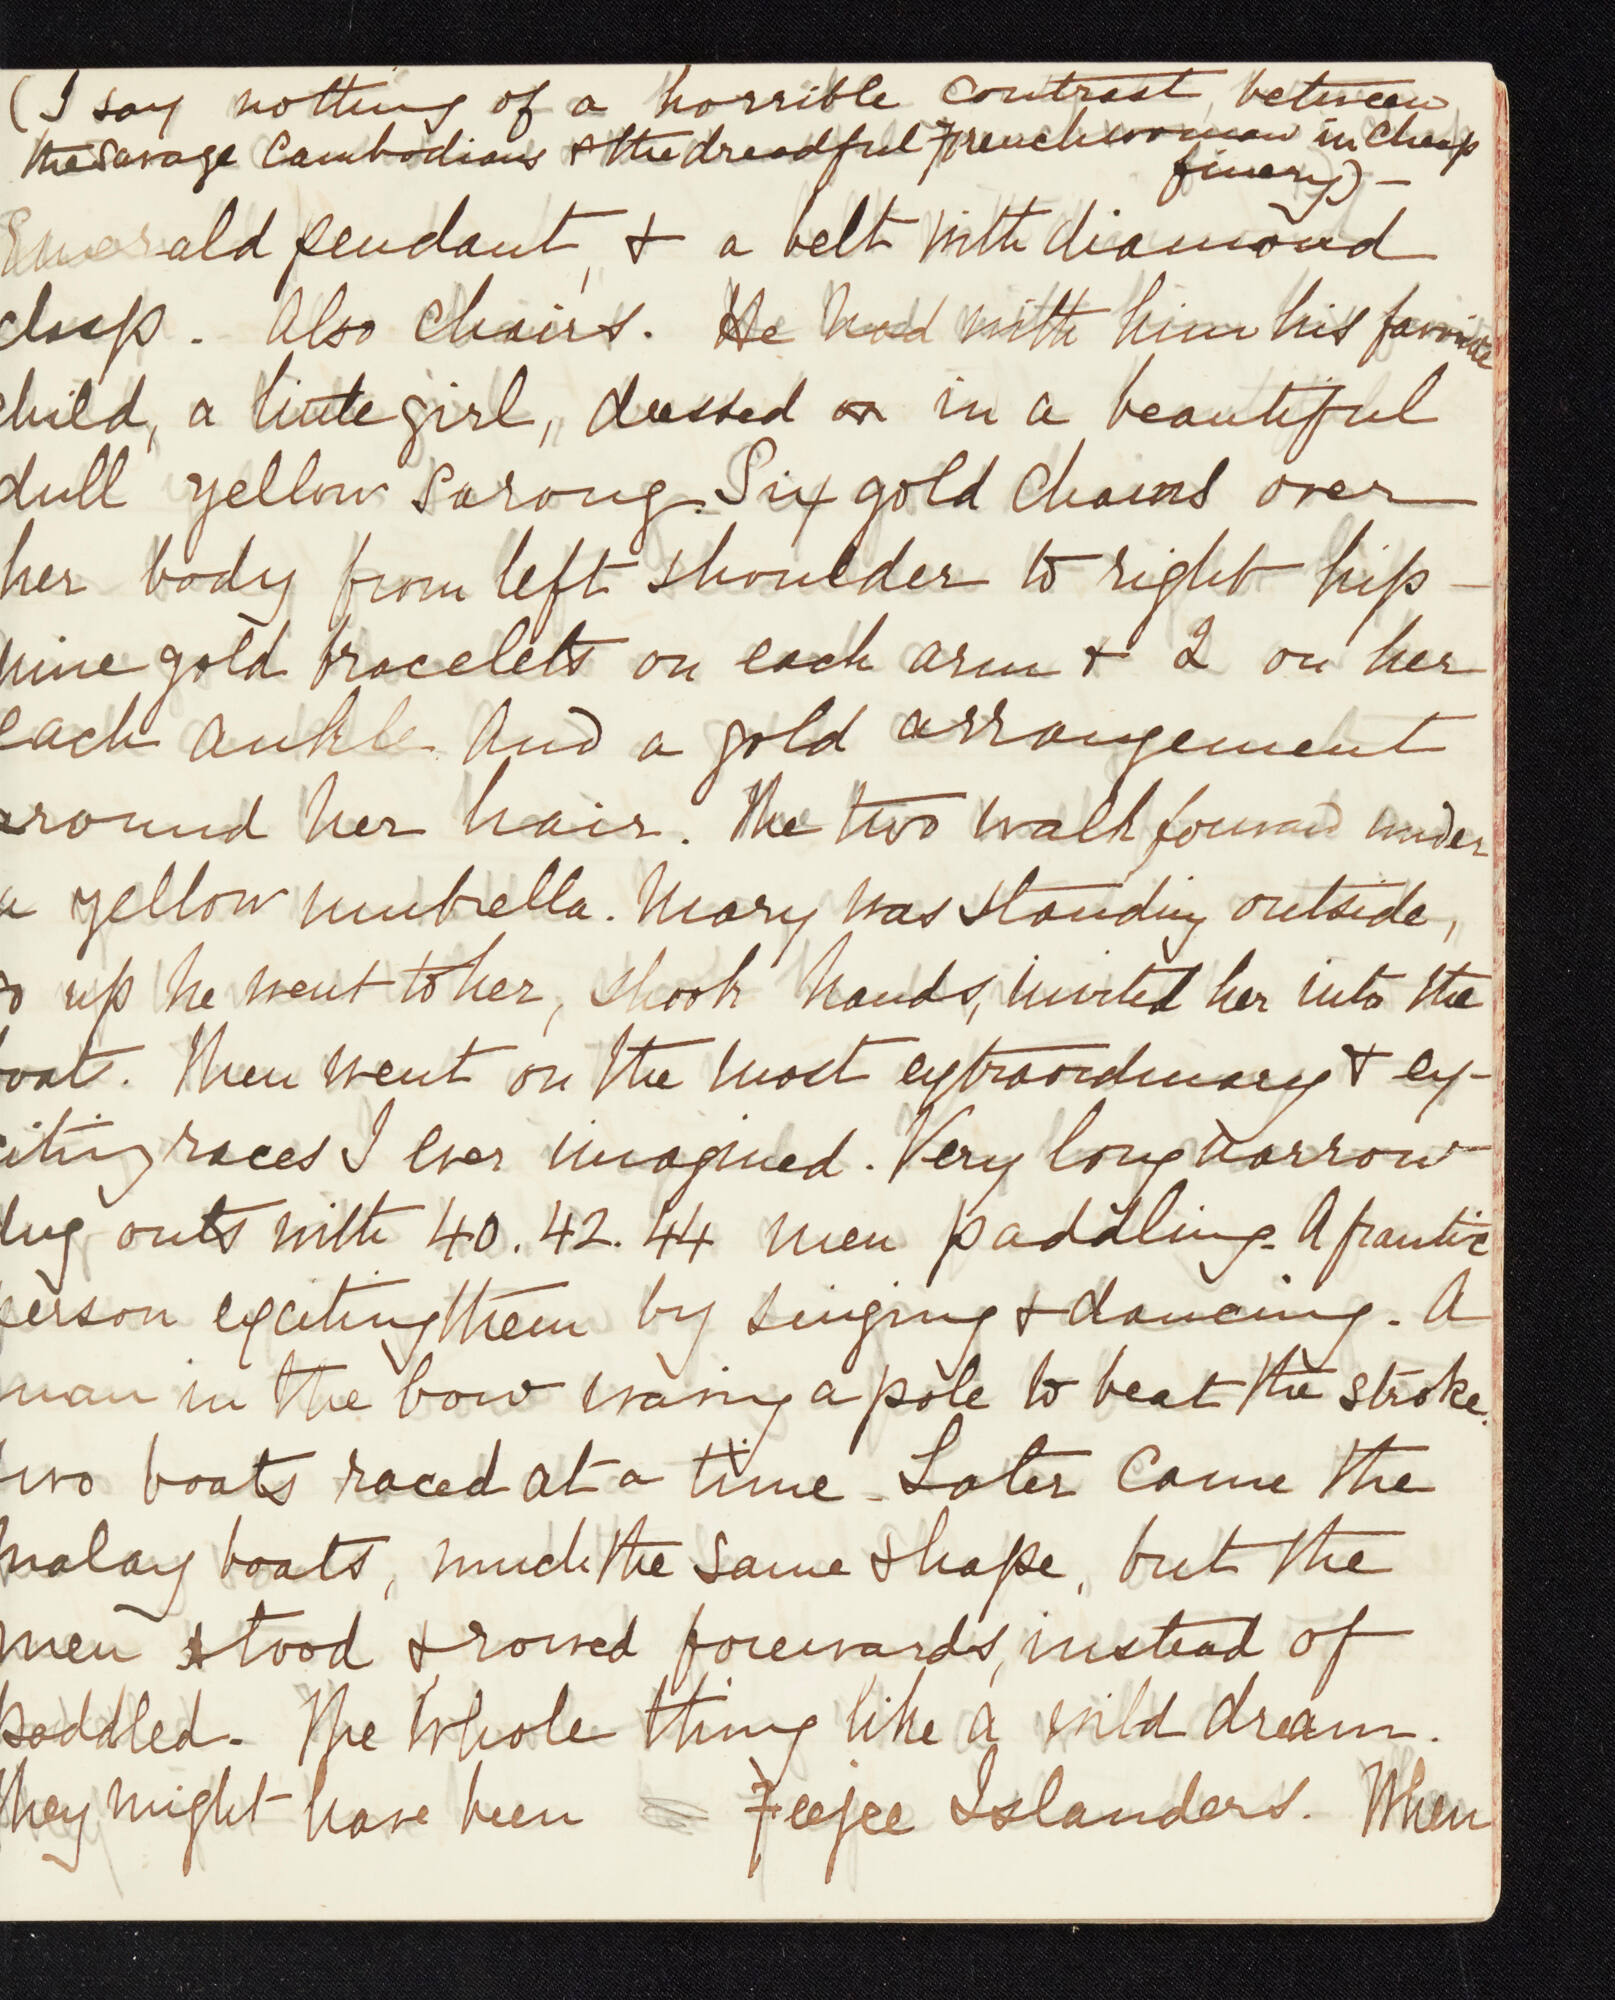 (I say nothing of a horrible contrast between
the savage Cambodians & the dreadful Frenchwoman in cheap
finery) —
Emerald pendant, & a belt with diamond
clasp. Also chairs. He had with him his favorite
child, a little girl, dressed in a beautiful
dull yellow sarong. Six gold chains over
her body from left shoulder to right hip —
nine gold bracelets on each arm & 2 on her
each ankle. And a gold arrangement
around her hair. The two walk forward under
a yellow umbrella. Mary was standing outside,
so up he went to her, shook hands, invited her into the
boat. Then went on the most extraordinary & ex-
citing races I ever imagined. Very long narrow
dug outs with 40. 42. 44 men paddling. A frantic
person exciting them by singing & dancing. A
man in the bow waving a pole to beat the stroke.
two boats raced at a time. Later came the
malay boats, much the same shape, but the
men stood & rowed forewards, instead of
paddled. The whole thing like a wild dream.
They might have been Feejee Islanders. When